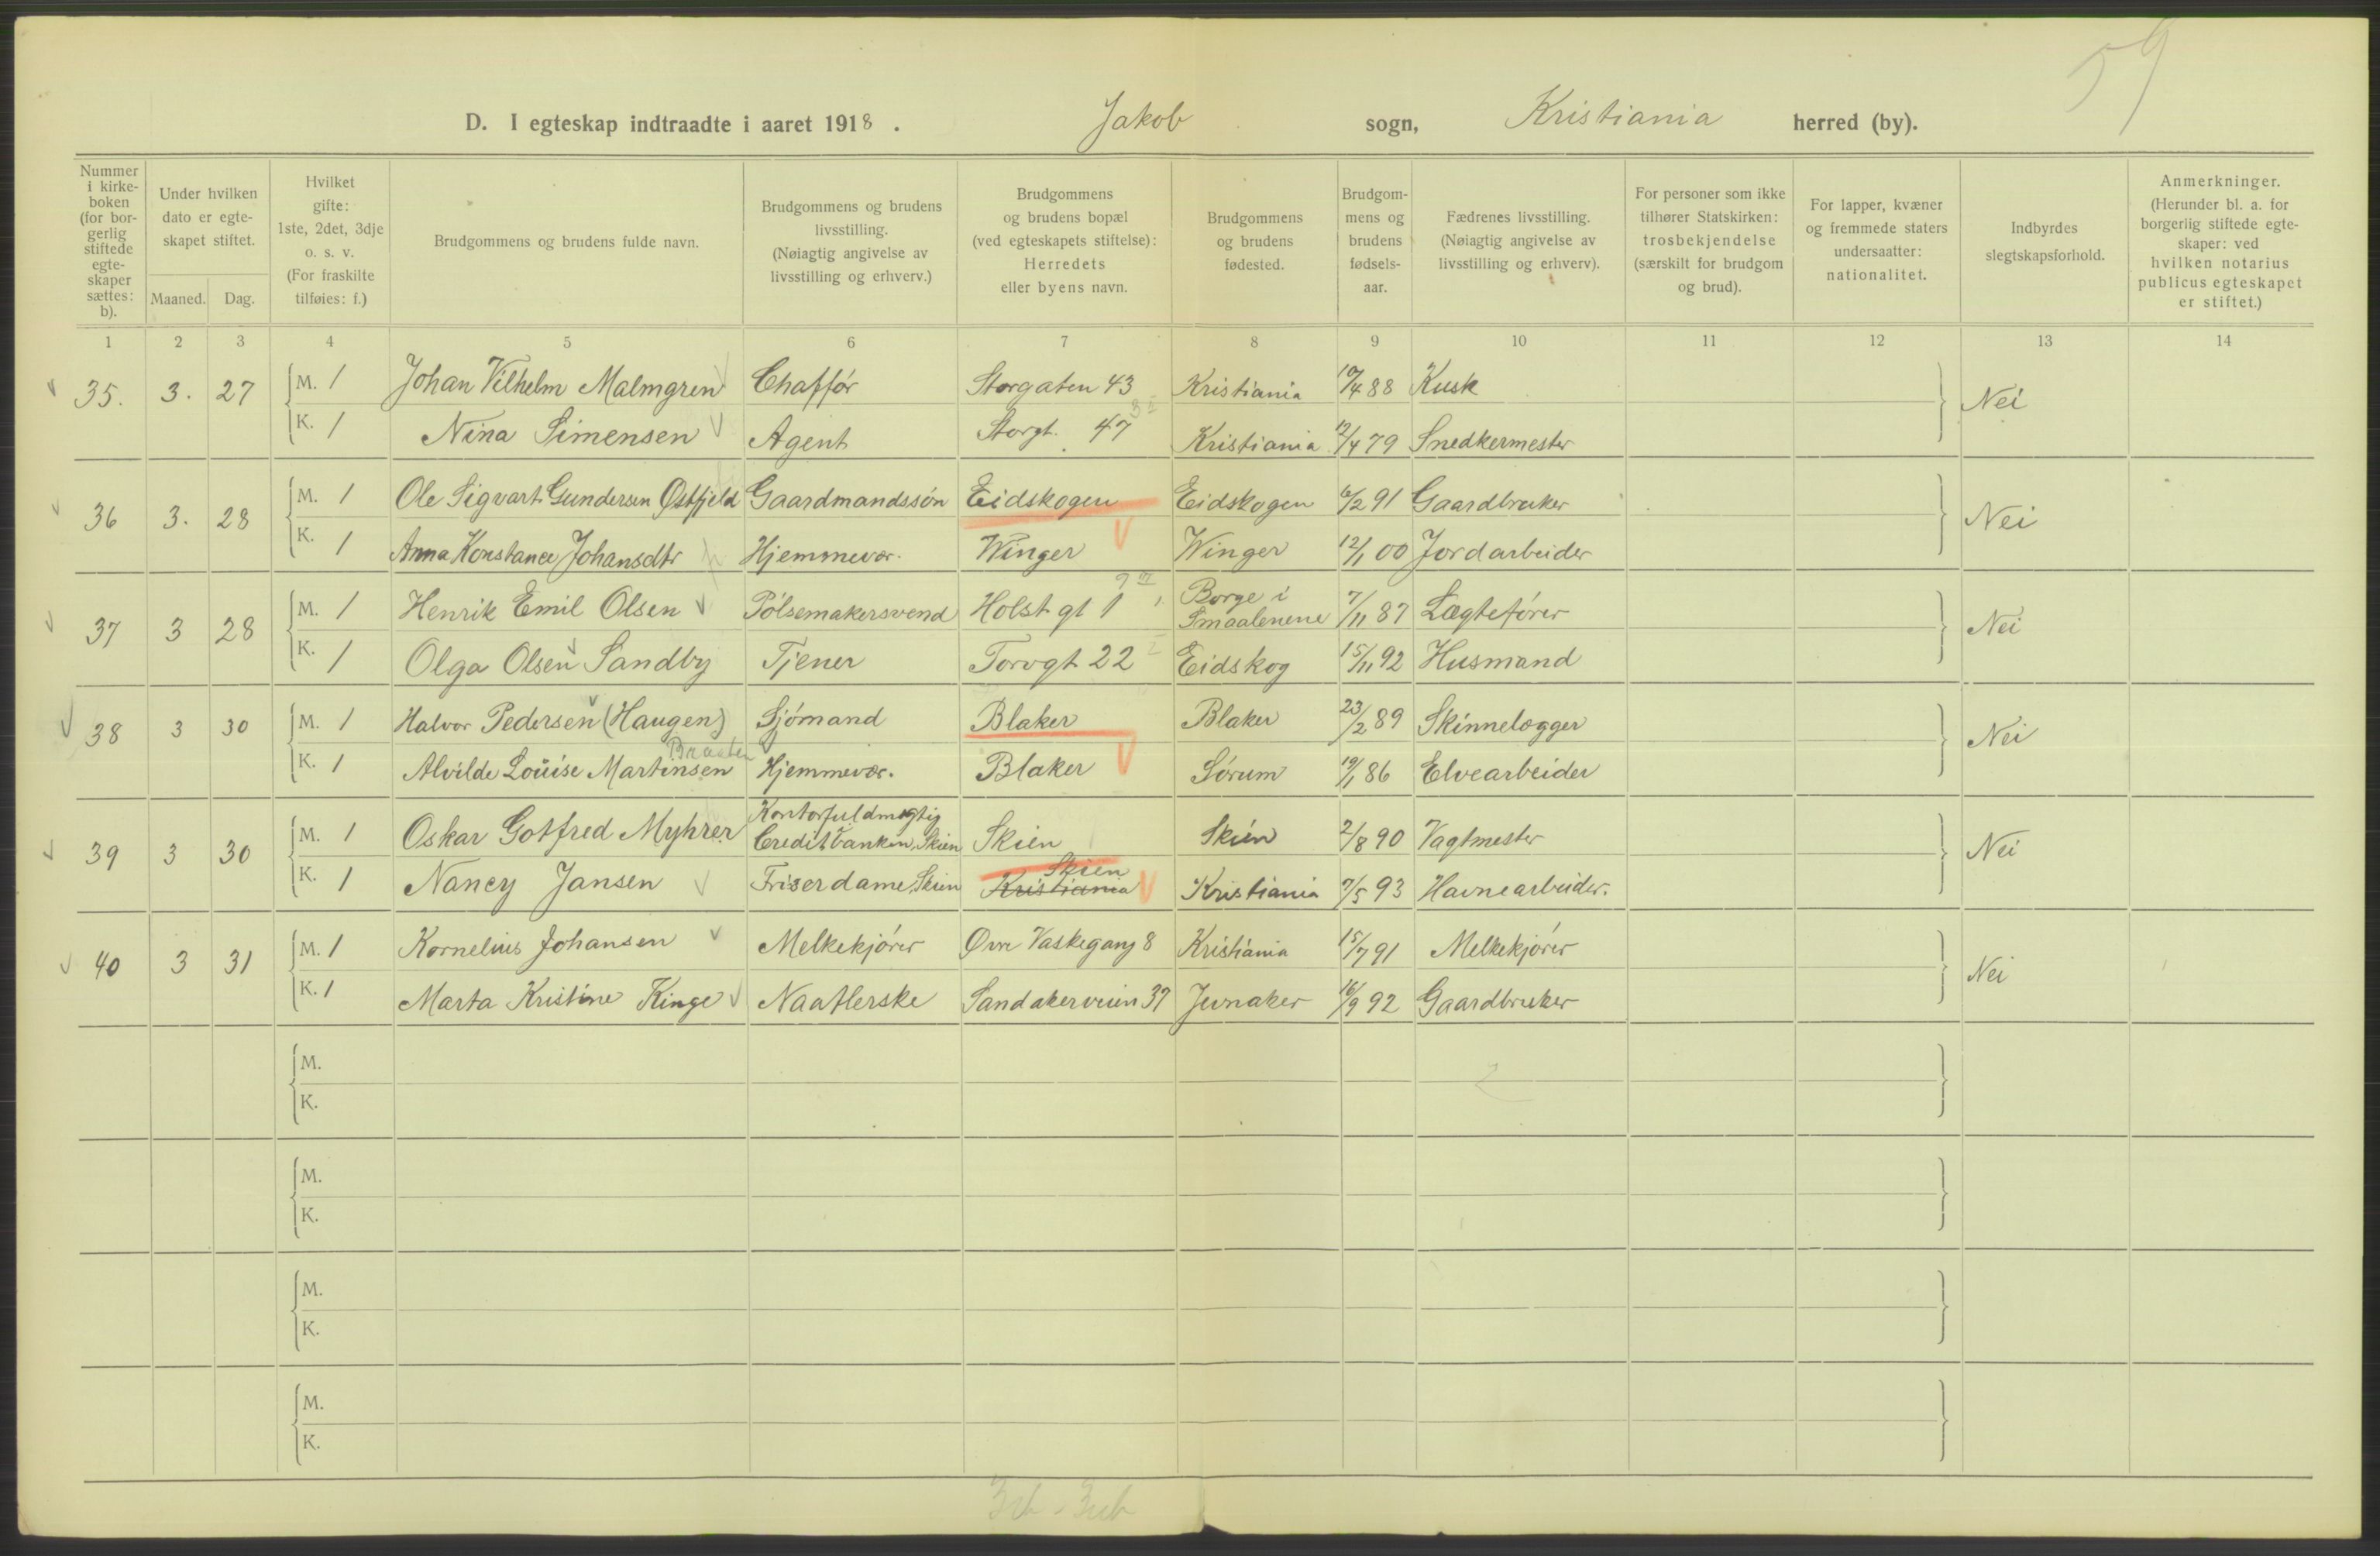 59
D. I egteskap indtraadte i aaret 1918. Jakob sogn, Kristiania herred (by).
Nummer i kirke-boken (for bor-gerlig stiftede egte-skaper sættes: b).
Under hvilken dato er egte-skapet stiftet.
Maaned. Dag.
Hvilket gifte: 1ste, 2det, 3dje o. s. v. (For fraskilte tilføies: f.)
Brudgommens og brudens fulde navn.
Brudgommens og brudens livsstilling. (Nøiagtig angivelse av livsstilling og erhverv.)
Brudgommens og brudens bopæl (ved egteskapets stiftelse): Herredets eller byens navn.
Brudgommens og brudens fødested.
Brudgom-mens og brudens fødsels-aar.
Fædrenes livsstilling. (Nøiagtig angivelse av livsstilling og erhverv).
For personer som ikke tilhører Statskirken: trosbekjendelse (særskilt for brudgom og brud).
For lapper, kvæner og fremmede staters undersaatter: nationalitet.
Indbyrdes slegtskapsforhold.
Anmerkninger. (Herunder bl. a. for borgerlig stiftede egte-skaper: ved hvilken notarius publicus egteskapet er stiftet.)
1 2 3 4 5 6 7 8 9 10 11 12 13 14
35. 3. 27 M. 1 Johan Vilhelm Malmgren Chaffør Storgaten 43 Kristiania 10/4 88 Kusk Nei
K. 1 Nina Simensen Agent Storgt. 47 Kristiania 12/4 79 Snedkermester
36 3. 28 M. 1 Ole Sigvart Gundersen Østfjeld Gaardmandssøn Eidskogen Eidskogen 6/2 91 Gaardbruker Nei
K. 1 Anna Konstance Johansdtr Hjemmevær. Winger Winger 12/1 00 Jordarbeider
37 3 28 M. 1 Henrik Emil Olsen Pølsemakersvend Holst gt 1 Borge i Smaalenene 7/11 87 Lægtefører Nei
K. 1 Olga Olsen Sandby Tjener Torvgt 22 Eidskog 15/11 92 Husmand
38 3 30 M. 1 Halvor Pedersen (Haugen) Sjømand Blaker Blaker 23/2 89 Skinnelægger Nei
Braaten
K. 1 Alvilde Louise Martinsen Hjemmevær. Blaker Sørum 19/1 86 Elvearbeider
39 3 30 M. 1 Oskar Gotfred Myhrer Kontorfuldmægtig Creditbanken, Skien Skien Skien 2/8 90 Vagtmester Nei
Skien
K. 1 Nancy Jansen Friserdame, Skien Kristiania Kristiania 7/5 93 Havnearbeider.
40 3 31 M. 1 Kornelius Johansen Melkekjører Øvre Vaskegang 8 Kristiania 15/7 91 Melkekjører Nei
K. 1 Marta Kristine Kinge Naatlerske Sandakerveien 37 Jevnaker 16/9 92 Gaardbruker
M.
K.
M.
K.
M.
K.
M.
K.